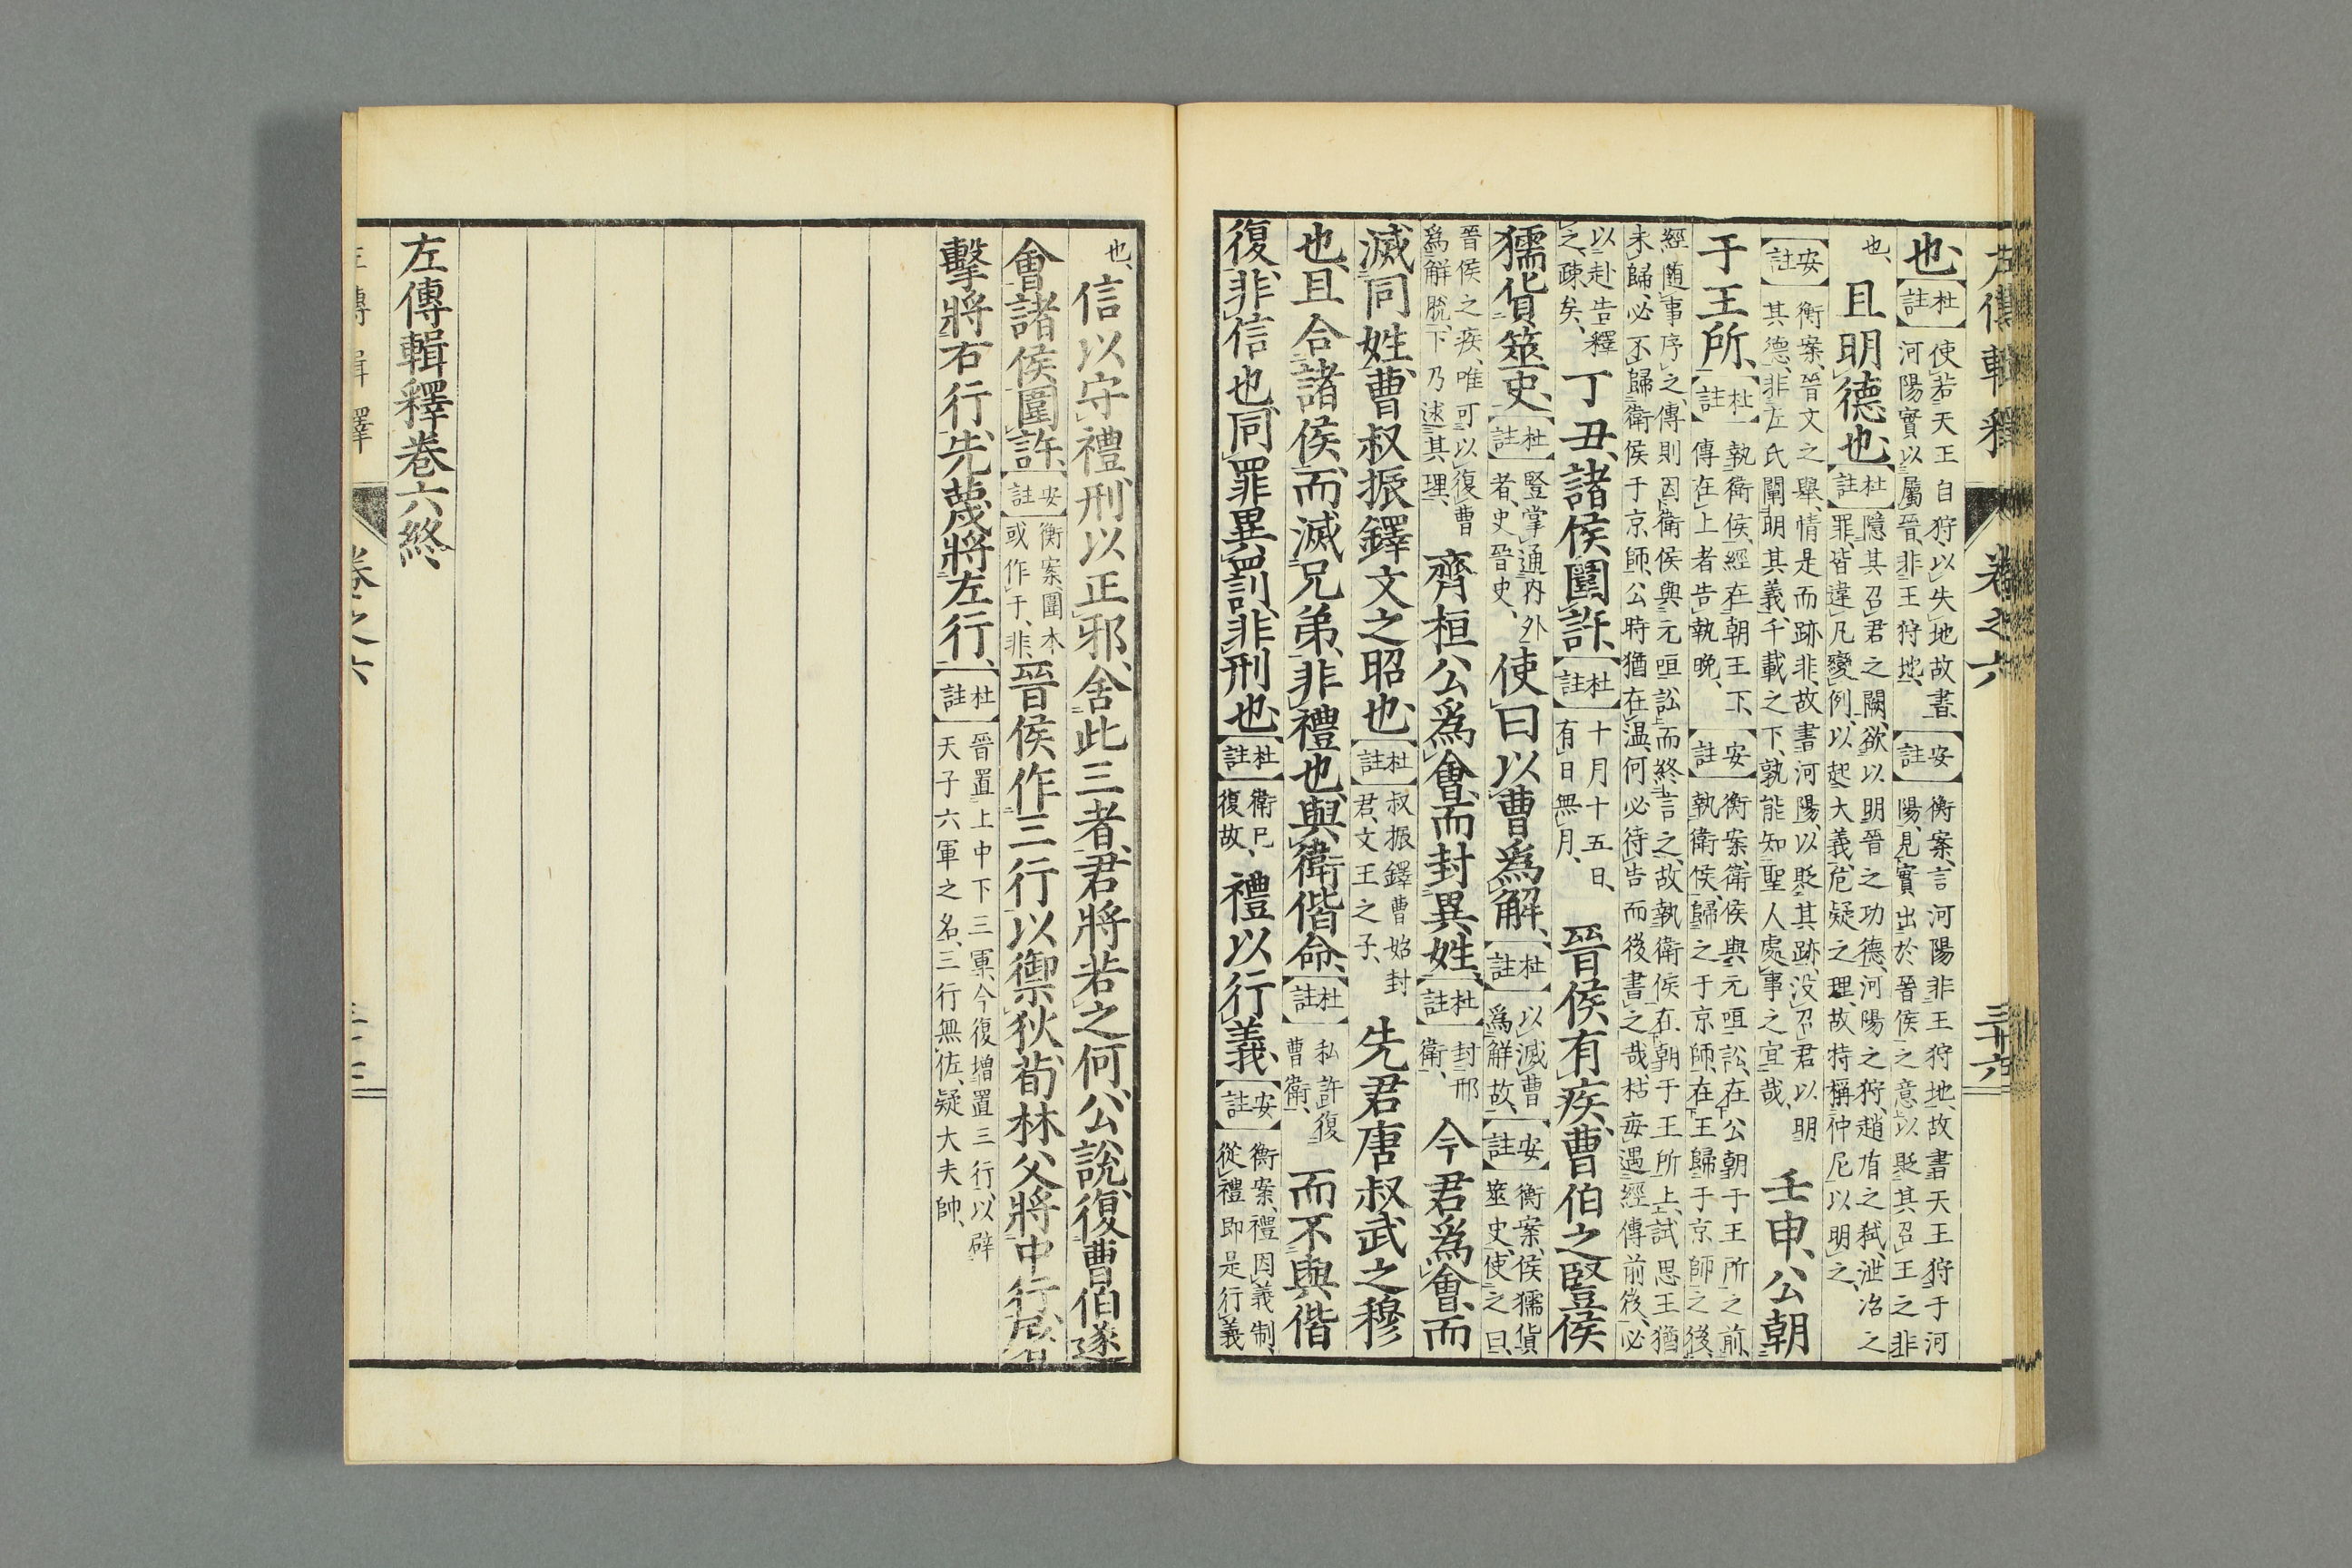 左傳輯釋 卷之六 三十六
也、【杜註】使若天王自狩、以失地故書、河陽實以屬晉、非王狩地、【安註】衡案、言河陽非王狩地、故書天王狩于河陽、見實出於晉侯之意、以貶其召王之非
也、且明德也、【杜註】隱其召君之闕、欲以明晉之功德、河陽之狩、趙盾之弑、泄冶之罪、皆違凡變例、以起大義、危疑之理、故特稱仲尼以明之、
【安註】衡案、晉文之舉、情是而跡非、故書河陽、以貶其跡、没召君以明其德、非左氏闡明其義、千載之下、孰能知聖人處事之宜哉、壬申、公朝
于王所、【杜註】執衛侯、經在朝王下、傳在上者、告執晚、【安註】衡案、衛侯與元咺訟、在公朝于王所之前、執衛侯、歸之于京師、在王歸于京師之後、
經随事序之、傳則因衛侯與元咺訟而終言之、故執衛侯在朝于王所上、試思王猶未歸、必不歸衛侯于京師、公時猶在温、何必待告而後書之哉、杜毎遇經傳前後、必
以赴告釋之、疎矣、丁丑、諸侯圍許、【杜註】十月十五日、有日無月、晉侯有疾、曹伯之豎侯
獳貨筮史、【杜註】豎、掌通内外者、史、晉史、使曰以曹爲解、【杜註】以滅曹爲解故、【安註】衡案、侯獳貨筮史、使之曰、
晉侯之疾、唯可以復曹爲解脱、下乃述其理、齊桓公爲會、而封異姓、【杜註】封邢衛、今君爲會、而
滅同姓、曹叔振鐸文之昭也、【杜註】叔振鐸、曹始封君、文王之子、先君唐叔武之穆
也、且合諸侯、而滅兄弟、非禮也、與衛偕命、【杜註】私許復曹衛、而不與偕
復、非信也、同罪異罰、非刑也、【杜註】衛已復故、禮以行義、【安註】衡案、禮因義制從禮即是行義
也、信以守禮、刑以正邪、舍此三者、君將若之何、公説、復曹伯、遂
會諸侯圍許、【安註】衡案、圍本或作于、非、晉侯作三行以禦狄、荀林父將中行、屠
擊將右行、先蔑將左行、【杜註】晉置上中下三軍、今復增置三行、以辟天子六軍之名、三行無佐、疑大夫帥、
左傳輯釋卷六終
左傳輯釋 卷之六